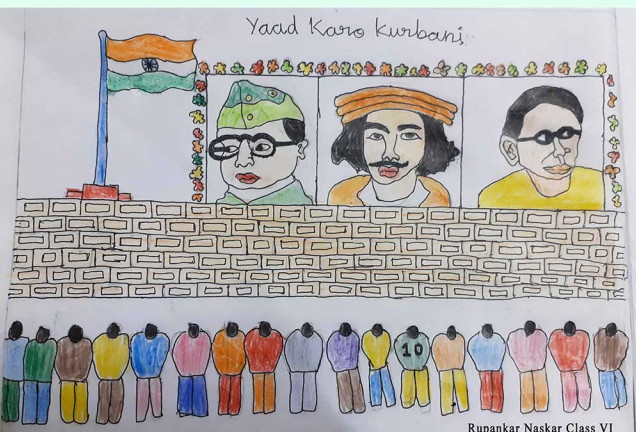 Yaad Karo Kurbani
10
Rupankar Naskar Class VI